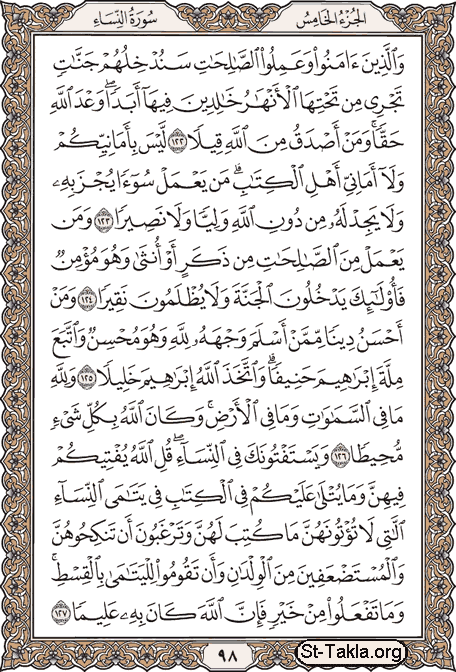 الجزء الخامس سورة النساء
وَالَّذِينَ ءَامَنُوا وَعَمِلُوا الصَّالِحَاتِ سَنُدْخِلُهُمْ جَنَّاتٍ
تَجْرِي مِن تَحْتِهَا الْأَنْهَارُ خَالِدِينَ فِيهَا أَبَدًا ۖ وَعْدَ اللَّهِ
حَقًّا ۚ وَمَنْ أَصْدَقُ مِنَ اللَّهِ قِيلًا ١٢٢ لَّيْسَ بِأَمَانِيِّكُمْ
وَلَا أَمَانِيِّ أَهْلِ الْكِتَابِ ۗ مَن يَعْمَلْ سُوءًا يُجْزَ بِهِ
وَلَا يَجِدْ لَهُ مِن دُونِ اللَّهِ وَلِيًّا وَلَا نَصِيرًا ١٢٣ وَمَن
يَعْمَلْ مِنَ الصَّالِحَاتِ مِن ذَكَرٍ أَوْ أُنثَىٰ وَهُوَ مُؤْمِنٌ
فَأُولَٰئِكَ يَدْخُلُونَ الْجَنَّةَ وَلَا يُظْلَمُونَ نَقِيرًا ١٢٤ وَمَنْ
أَحْسَنُ دِينًا مِّمَّنْ أَسْلَمَ وَجْهَهُ لِلَّهِ وَهُوَ مُحْسِنٌ وَاتَّبَعَ
مِلَّةَ إِبْرَاهِيمَ حَنِيفًا ۗ وَاتَّخَذَ اللَّهُ إِبْرَاهِيمَ خَلِيلًا ١٢٥ وَلِلَّهِ
مَا فِي السَّمَاوَاتِ وَمَا فِي الْأَرْضِ ۚ وَكَانَ اللَّهُ بِكُلِّ شَيْءٍ
مُّحِيطًا ١٢٦ وَيَسْتَفْتُونَكَ فِي النِّسَاءِ ۖ قُلِ اللَّهُ يُفْتِيكُمْ
فِيهِنَّ وَمَا يُتْلَىٰ عَلَيْكُمْ فِي الْكِتَابِ فِي يَتَامَى النِّسَاءِ
الَّتِي لَا تُؤْتُونَهُنَّ مَا كُتِبَ لَهُنَّ وَتَرْغَبُونَ أَن تَنكِحُوهُنَّ
وَالْمُسْتَضْعَفِينَ مِنَ الْوِلْدَانِ وَأَن تَقُومُوا لِلْيَتَامَىٰ بِالْقِسْطِ ۚ
وَمَا تَفْعَلُوا مِنْ خَيْرٍ فَإِنَّ اللَّهَ كَانَ بِهِ عَلِيمًا ١٢٧
٩٨
St-Takla.org